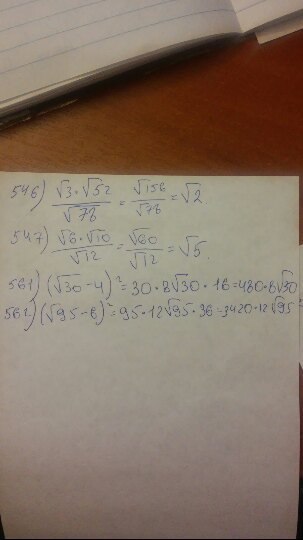 546) √3·√52/√78 = √156/√78 = √2.
547) √6·√10/√12 = √60/√12 = √5.
561) (√30-4)² = 30·8√30·16=480·8√30
561) (√95-6)² = 95·12√95·36=3420·12√95